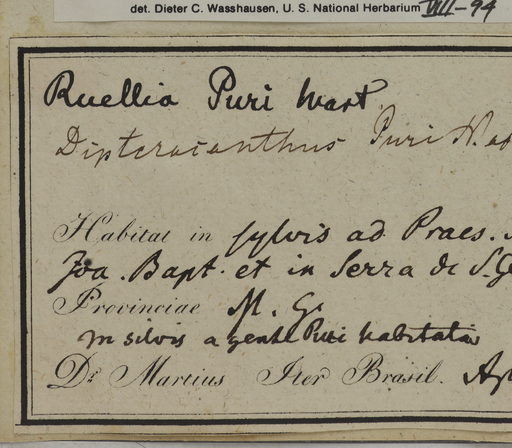 det. Dieter C. Wasshausen, U. S. National Herbarium VIII-94
Ruellia Puri Mart
Dipteracanthus Puri N. ab
Habitat in sylvis ad Praes. S.
Joa. Bapt. et in Serra de S. G
Provinciae M. G.
in silvis a gente Puri habitatis
Dr Martius Iter Brasil. Ap